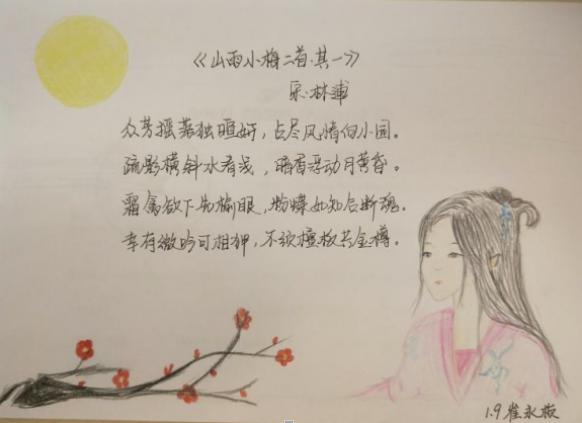 《山雨小梅二首·其一》
宋·林逋
众芳摇落独暄妍，占尽风情向小园。
疏影横斜水清浅，暗香浮动月黄昏。
霜禽欲下先偷眼，粉蝶如知合断魂。
幸有微吟可相狎，不须檀板共金樽。
1.9 崔永